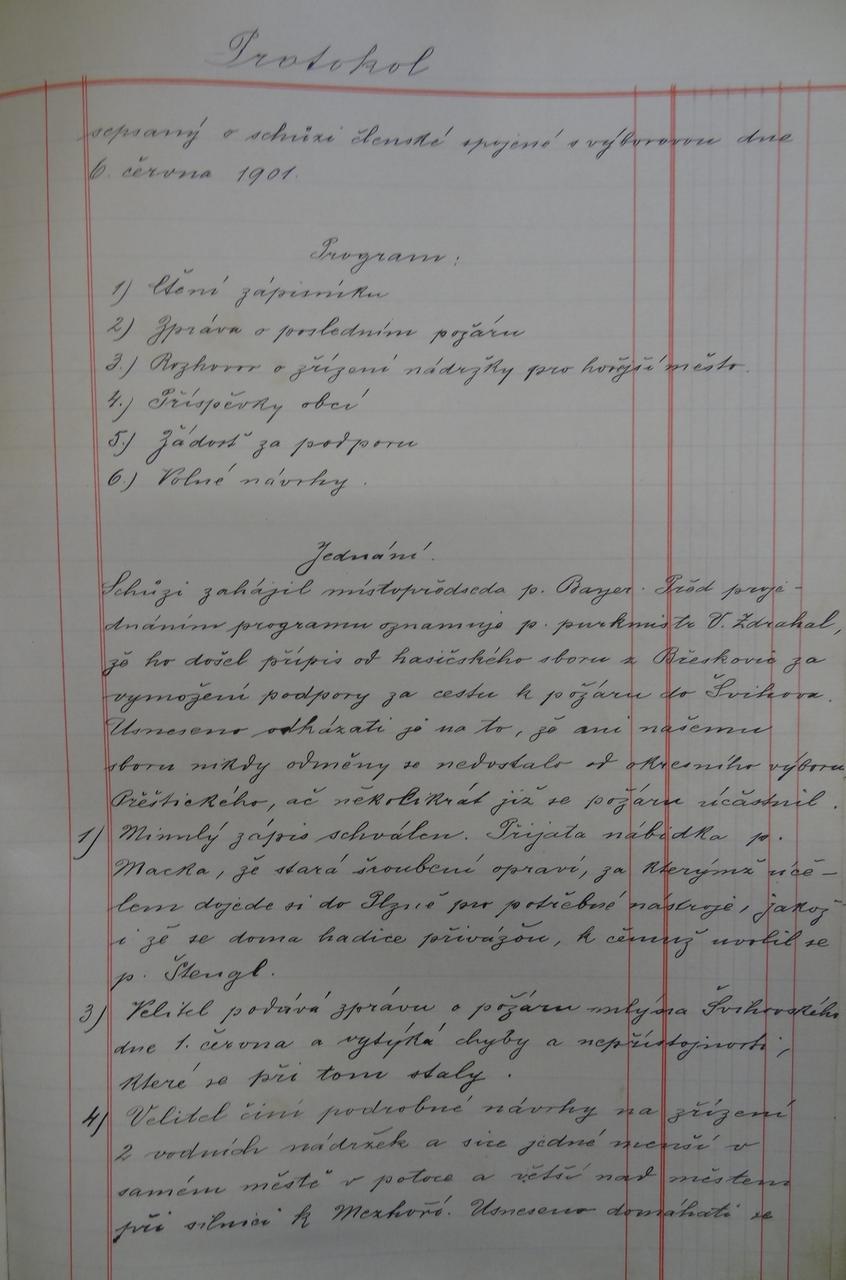 Protokol
sepsaný o schůzi členské spojené s výborovou dne
6. června 1901.
Program:
1) Čtení zápisníku
2) Zpráva o posledním požáru
3.) Rozhovor o zřízení nádržky pro hořejší město.
4.) Příspěvky obcí
5.) Žádosť za podporu
6.) Volné návrhy.
Jednání.
Schůzi zahájil místopředseda p. Bayer. Před proje-
dnáním programu oznamuje p. purkmistr V. Zdrahal,
že ho došel přípis od hasičského sboru z Břeskovic za
vymožení podpory za cestu k požáru do Švihova.
Usneseno odkázati je na to, že ani našemu
sboru nikdy odměny se nedostalo od okresního výboru
Přeštického, ač několikrát již se požáru účástnil.
1) Minulý zápis schválen. Přijata nabídka p.
Macka, že stará šroubení opraví, za kterýmž úče-
lem dojede si do Plzně pro potřebné nástroje, jakož
i že se doma hadice přivážou, k čemuž uvolil se
p. Štengl.
3) Velitel podává zprávu o požáru mlýna Švihovského
dne 1. června a vytýká chyby a nepřístojnosti,
které se při tom staly.
4) Velitel činí podrobné návrhy na zřízení
2 vodních nádržek a sice jedné menší v
samém městě v potoce a větší nad městem
při silnici k Mezhoří. Usneseno domáhati se